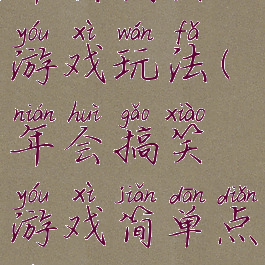 yóu xì wán fǎ
游戏玩法(
nián huì gǎo xiào
年会搞笑
yóu xì jiǎn dān diǎn
游戏简单点